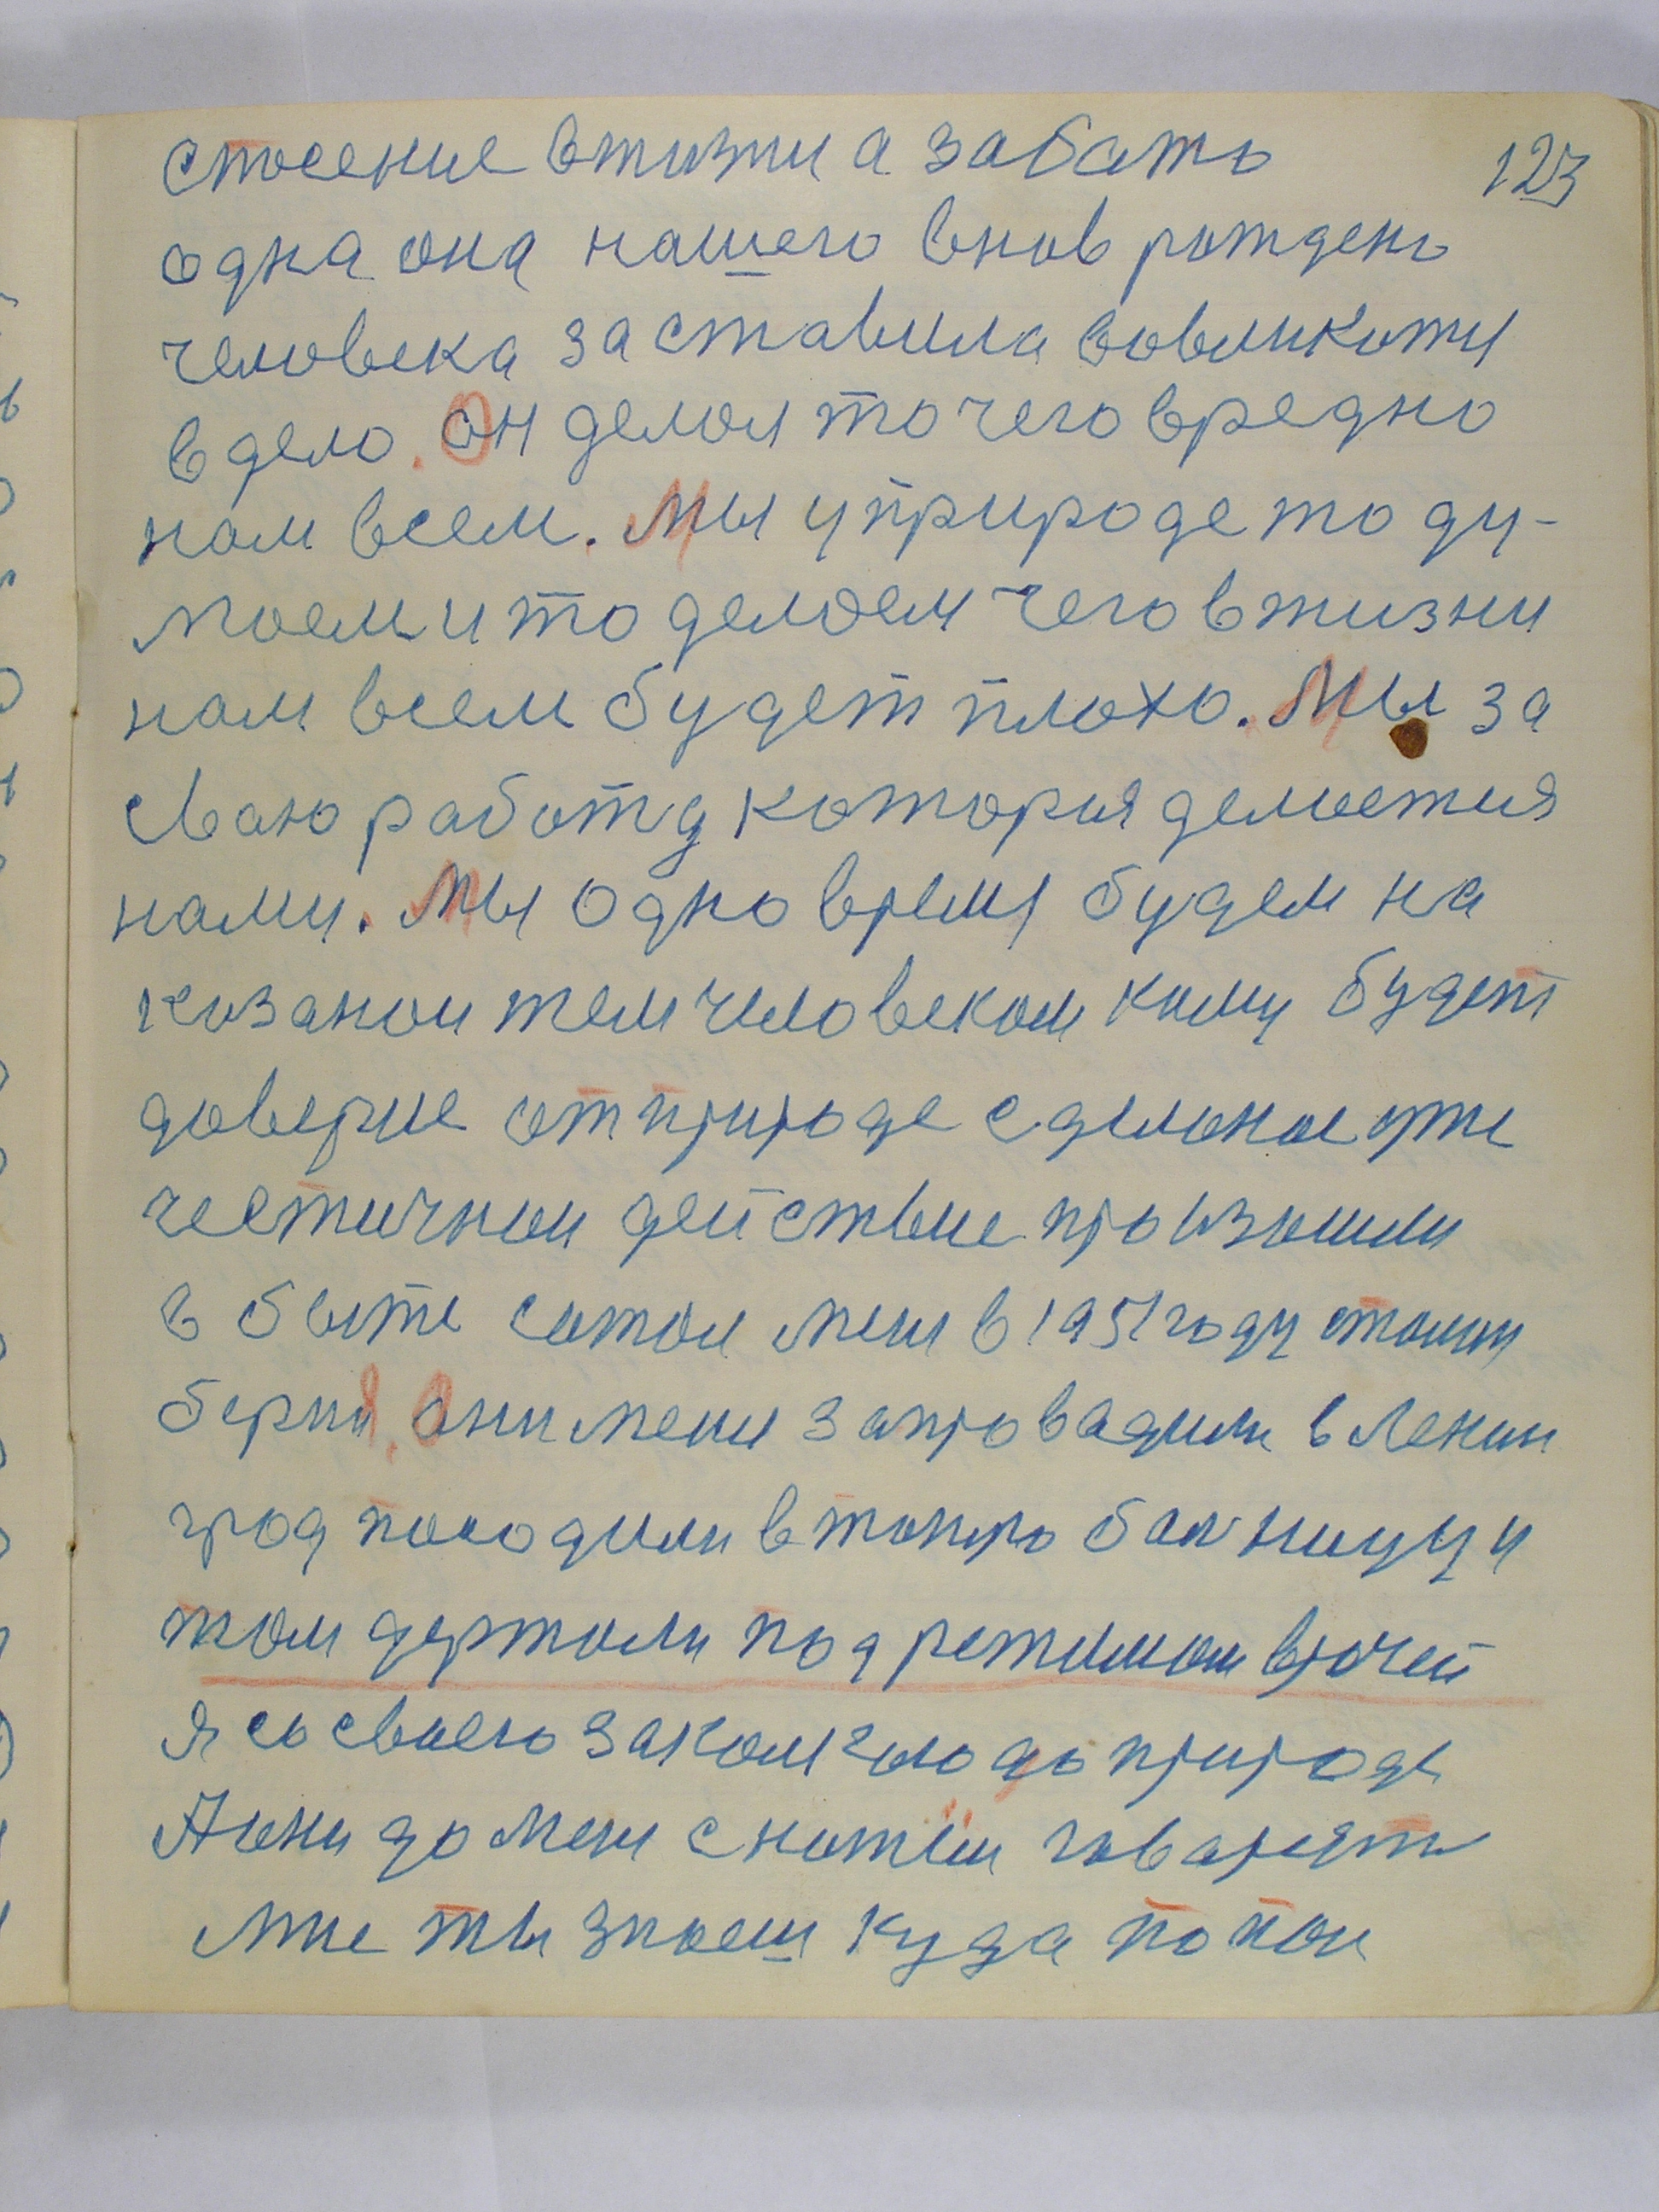 123
спосение в жизни а забать
одна она нашего внов рождено
человека заставила вовликати
в дело. Он делал то чего вредно
нам всем. Мы у природе то ду-
моем и то делаем чего в жизни
нам всем будет плохо. Мы за
сваю работу которая делоетия
нами. Мы одно время будем на
казаном тем человеком кому будет
доверие от природе сделоное уже
чеетичном действие произошли
в быте сомои мени в 1951 году стоим
берия. Они мени запровадили в Ленин
град положили в тюпро болницу и
там держоли под режимом врочей
я со своего законом гою до природе
А они до мени с нотеш говарят
мне ты знаеш куда попои